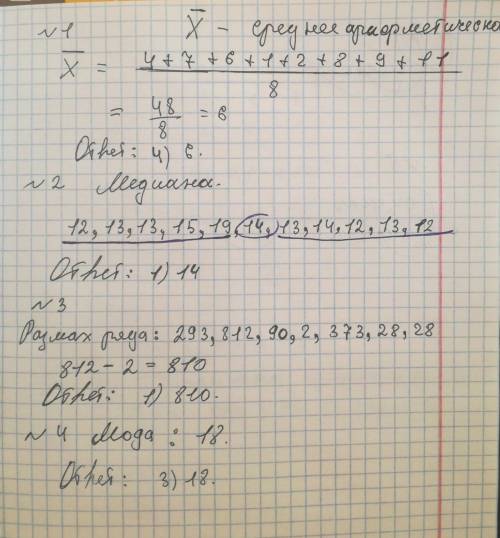 ~ 1 X̄ - среднее арифметическо
X̄ = 4 + 7 + 6 + 1 + 2 + 8 + 9 + 11
8
= 48/8 = 6
Ответ: 4) 6.
~ 2 Медиана.
12, 13, 13, 15, 19, 14, 13, 14, 12, 13, 12
Ответ: 1) 14
~ 3
Размах ряда: 293, 812, 90, 2, 373, 28, 28
812 - 2 = 810
Ответ: 1) 810.
~ 4 Мода: 18.
Ответ: 3) 18.